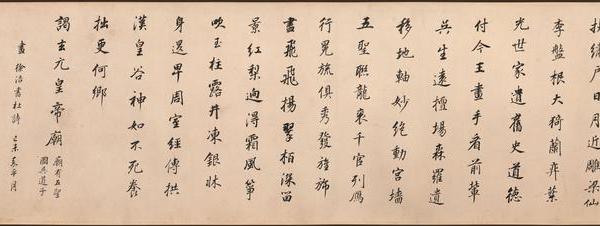 扶繡戶日月近雕梁仙
李盤根大猗蘭弈葉
光世家遺舊史道德
付今王畫手看前輩
吳生遠擅場森羅遺
移地軸妙絕動宮墻
五聖聯龍袞千官列鴈
行冕旒俱秀發旌旆
盡飛飛揚翠柏深留
景紅梨迥得霜風箏
吹玉柱露井凍銀牀
身退卑周室經傳拱
漢皇谷神如不死養
拙更何鄉
謁玄元皇帝廟
廟有五聖
圖吳道子
畫 書杜詩 己未春 月